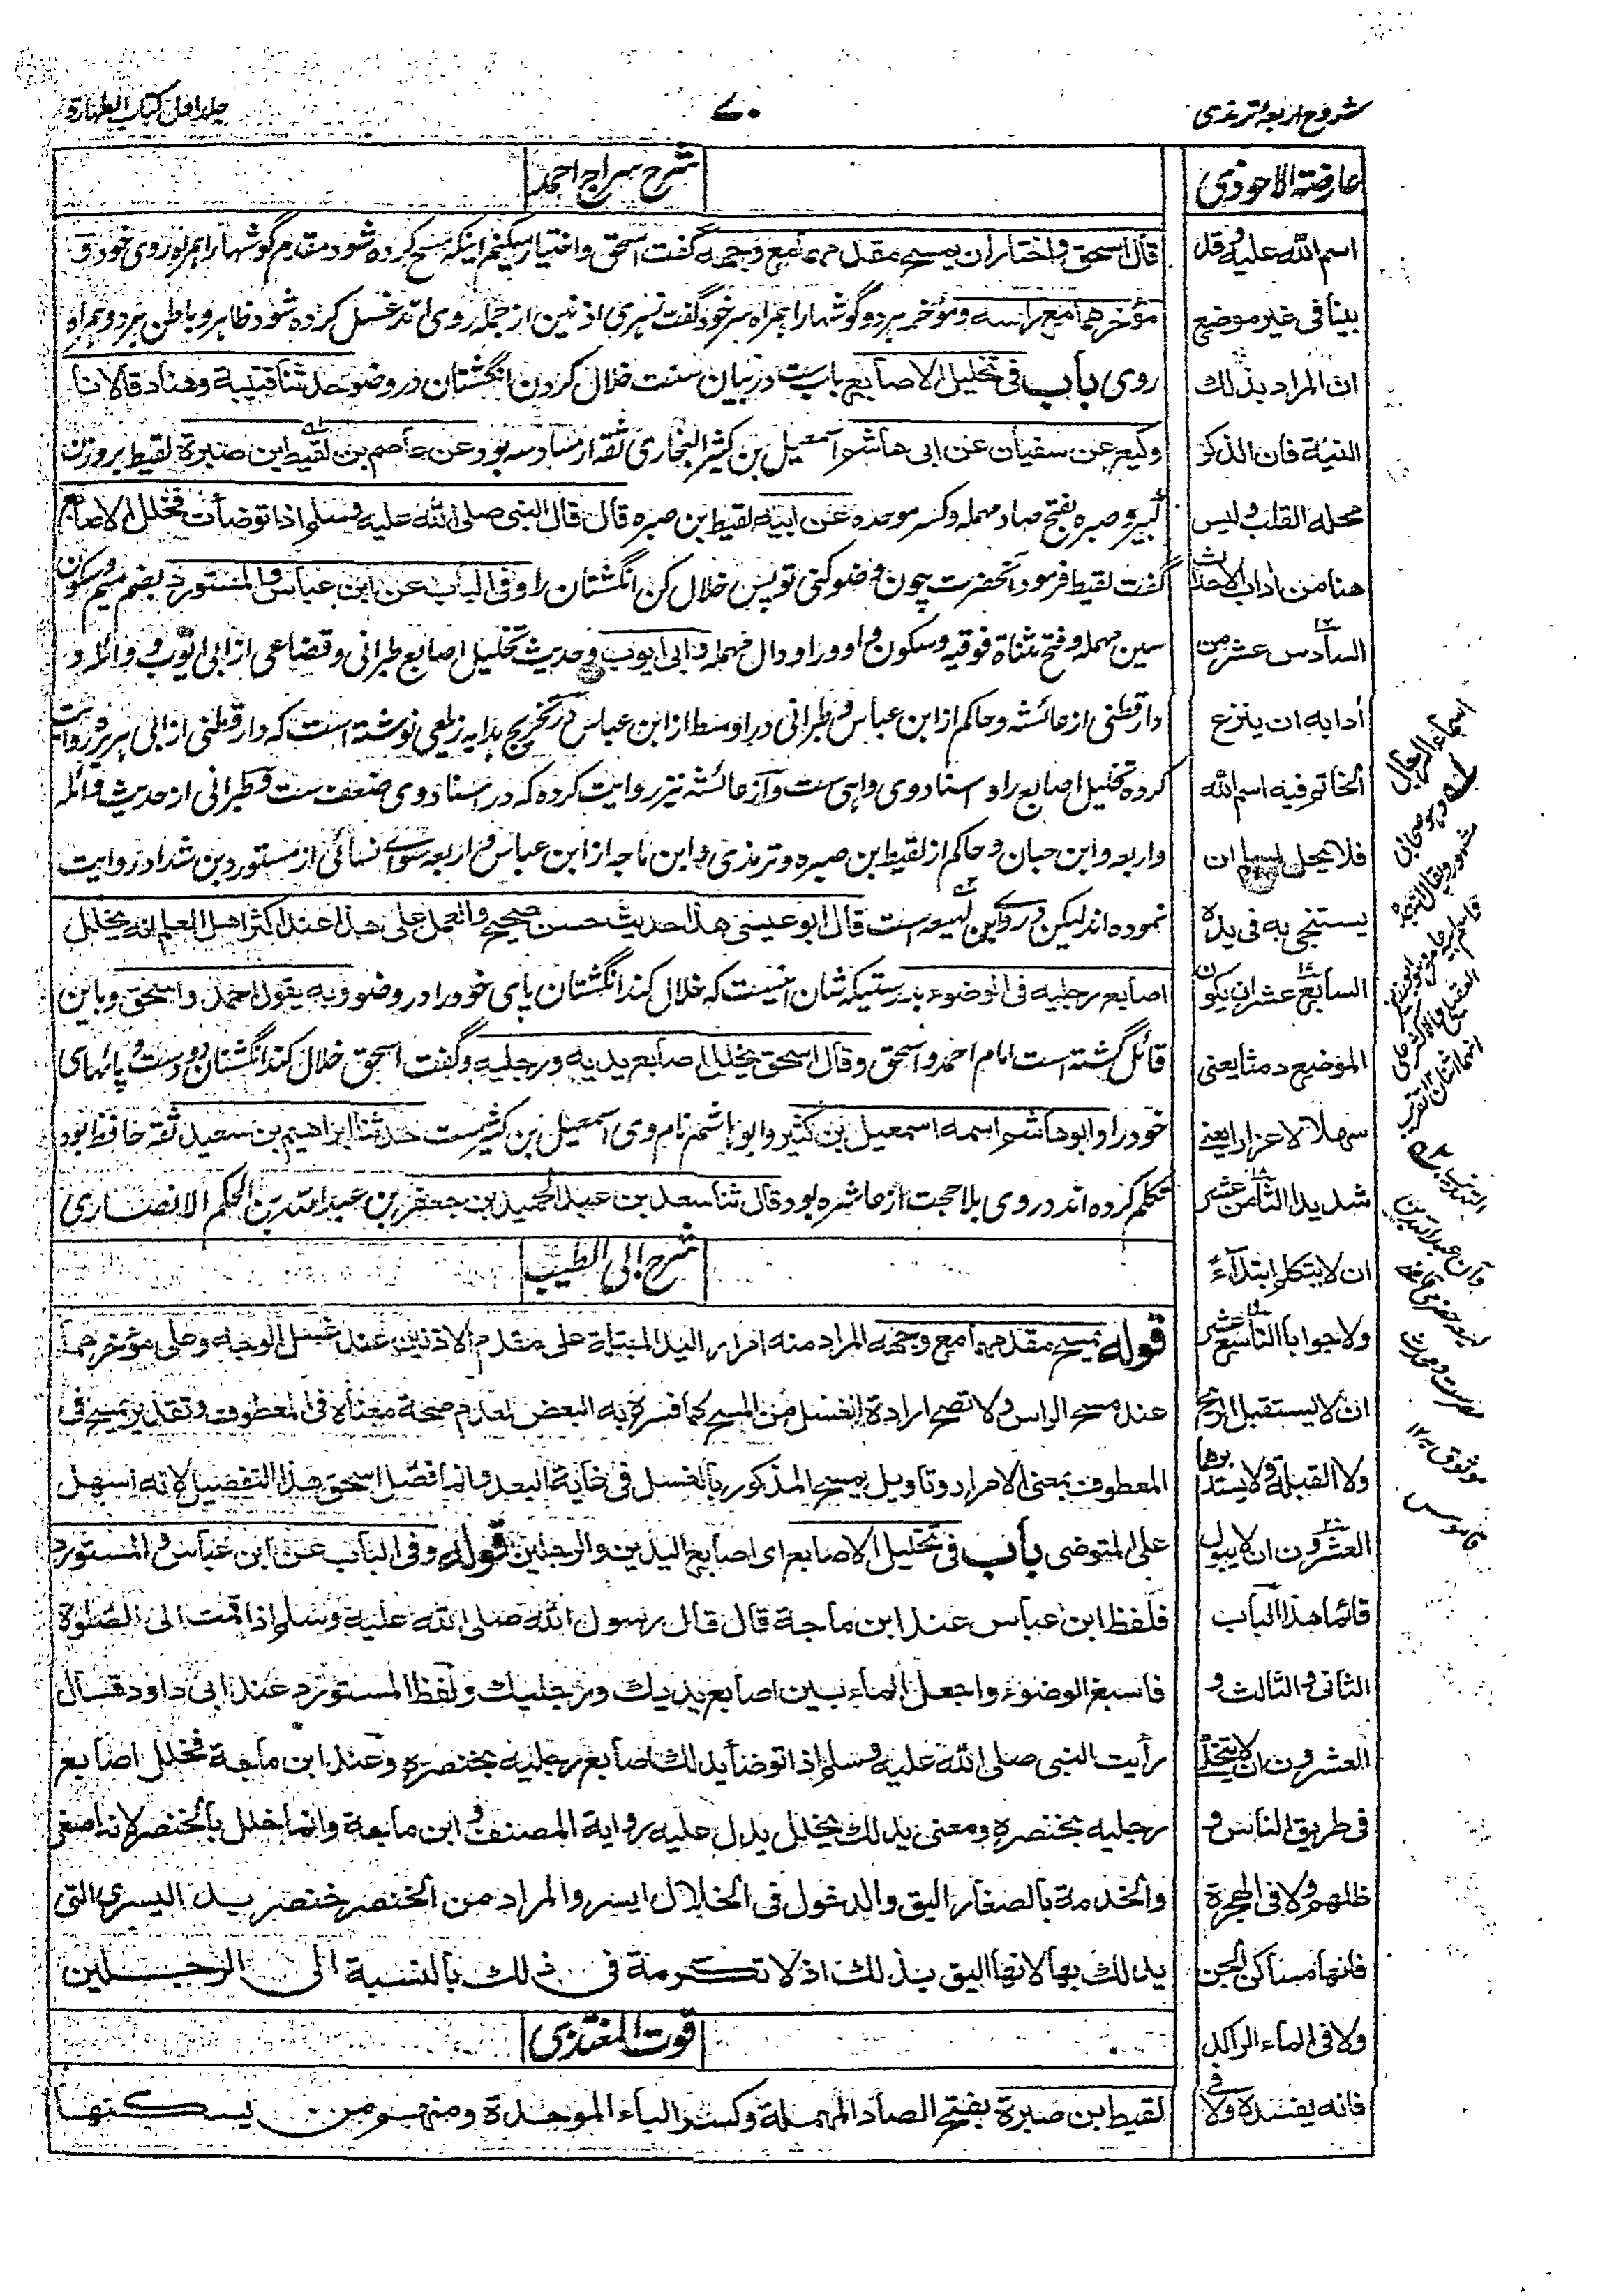 شروح اربعہ ترمذی
۷۰
جلد اول کتاب الطهارة
عارضة الاحوذی
اسم الله عليه وقد
بينا فی غير موضع
ان المراد بذلك
النية فان الذكر
محله القلب وليس
هنا من اداب الاحداث
السادس عشر من
أدابه ان ينزع
الخاتم فيه اسم الله
فلا يحل لمسلم ان
يستنجی به فی يده
السابع عشر ان يكون
الموضع دمثا يعنی
سهلا لا عزازا يعنی
شديدا الثامن عشر
ان لا يتكلم ابتداء
ولا جوابا التاسع عشر
ان لا يستقبل الريح
ولا القبلة ولا يستدبرها
العشرون ان لا يبول
قائما هذا الباب
الثانی والثالث و
العشرون ان لا يتخلى
فی طريق الناس و
ظلهم ولا فی الجحرة
فانها مساكن الجن
ولا فی الماء الراكد
فانه يفسده ولا فی
شرح سراج احمد
قال اسحق واختار ان يمسح مقدمهما مع وجهه گفت اسحق و اختیار میکنم اینکه مسح کرده شود مقدم گوشها را همراه روی خود و
مؤخرهما مع راسه و مؤخر هر دو گوشها را همراه سر خود گفت زهری اذنین از جمله روی اند غسل کرده شود ظاهر و باطن هر دو همراه
روی باب فی تخليل الاصابع باب ست در بیان سنت خلال کردن انگشتان در وضو حدثنا قتيبة وهناد قالا نا
وكيع عن سفيان عن ابی هاشم اسمعیل بن کثیر البخاری ثقه از سادسه بود عن عاصم بن لقيط ابن صبرة لقیط بر وزن
کبیر و صبره بفتح صاد مهمله و کسر موحده عن ابيه لقیط ابن صبره قال قال النبی صلی الله عليه وسلم اذا توضأت فخلل الاصابع
گفت لقیط فرمود آنحضرت چون وضو کنی تو پس خلال کن انگشتان را وفی الباب عن ابن عباس والمستورد بضم میم و سکون
سین مهمله و فتح مثناة فوقیه و سکون واو و را و دال مهمله وابی ایوب و حدیث تخلیل اصابع طبرانی و قضاعی از ابی ایوب و وائله و
دارقطنی از عائشه و حاکم از ابن عباس و طبرانی در اوسط از ابن عباس در تخریج هدایه زیلعی نوشته است که دارقطنی از ابی هریره روایت
کرده تخلیل اصابع را و اسناد وی واهی ست و از عائشه نیز روایت کرده که در اسناد وی ضعف ست و طبرانی از حدیث وائله
و اربعه و ابن حبان و حاکم از لقیط بن صبره و ترمذی و ابن ماجه از ابن عباس و اربعه سوای نسائی از مستورد بن شداد روایت
نموده اند لیکن در روایتش ابن لهیعه است قال ابو عيسى هذا حديث حسن صحيح والعمل على هذا عند اكثر اهل العلم انه يخلل
اصابع رجليه فی الوضوء بدرستیکه شان اینست که خلال کند انگشتان پای خود را در وضو وبه يقول احمد واسحق و باین
قائل گشته است امام احمد و اسحق وقال اسحق يخلل اصابع يديه ورجليه و گفت اسحق خلال کند انگشتان دو دست و پائهای
خود را وابو هاشم اسمه اسمعيل بن كثير و ابو هاشم نام وی اسمعیل بن کثیر ست حدثنا ابراهيم بن سعيد ثقه حافظ بود
تکلم کرده اند در وی بلا حجت از عاشره بود قال ثنا سعد بن عبد الحميد بن جعفر بن عبد الله بن الحكم الانصاری
شرح ابی الطیب
قوله يمسح مقدمهما مع وجهه المراد منه امرار اليد المبتلة على مقدم الاذنين عند غسل الوجه وعلى مؤخرهما
عند مسح الراس ولا تصح ارادة الغسل من المسح كما فسره به البعض لعدم صحة معناه فی المعطوف وتقدير يمسح فی
المعطوف بمعنى الامرار وتاويل يمسح المذكور بالغسل فی غاية البعد وانما فضل اسحق هذا التفصيل لانه اسهل
على المتوضی باب فی تخليل الاصابع ای اصابع اليدين والرجلين قوله وفی الباب عن ابن عباس والمستورد
فلفظ ابن عباس عند ابن ماجة قال قال رسول الله صلى الله عليه وسلم اذا قمت الى الصلوة
فاسبغ الوضوء واجعل الماء بين اصابع يديك ورجليك ولفظ المستورد عند ابی داود قال
رأيت النبی صلى الله عليه وسلم اذا توضأ يدلك اصابع رجليه بخنصره وعند ابن ماجة فخلل اصابع
رجليه بخنصره ومعنى يدلك يخلل يدل عليه رواية المصنف وابن ماجة وانما خلل بالخنصر لانه اصغر
والخدمة بالصغار اليق والدخول فی الخلال ايسر والمراد من الخنصر خنصر يد اليسرى التی
يدلك بها لانها اليق بذلك اذ لا تكرمة فی ذلك بالنسبة الى الرجلين
قوت المغتذی
لقيط ابن صبرة بفتح الصاد المهملة وكسر الباء الموحدة ومنهم من يسكنها
اسماء الرجال